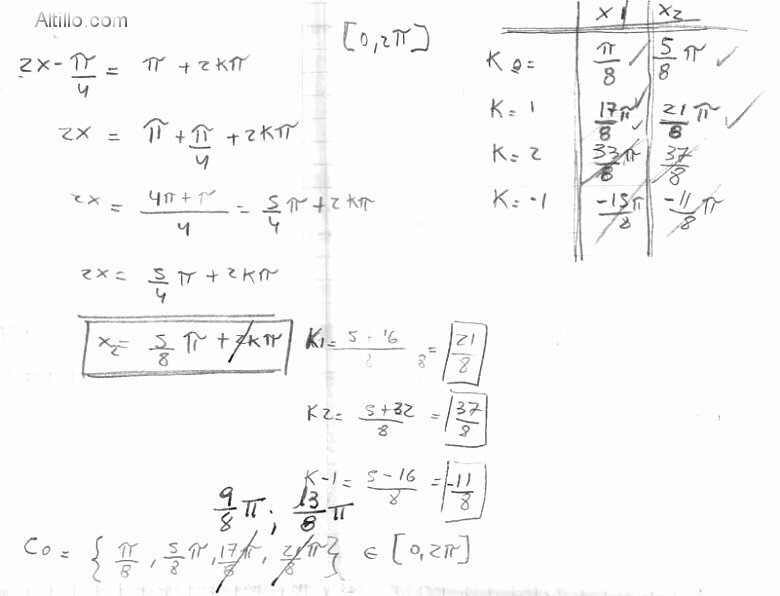 Altillo.com
[0,2π]
2x - π/4 = π + 2kπ
2x = π + π/4 + 2kπ
2x = (4π + π)/4 = 5/4 π + 2kπ
2x = 5/4 π + 2kπ
x₂ = 5/8 π + 2kπ
x1 x2
K 0= π/8 ✓ 5/8 π ✓
K=1 17/8 π ✓ 21/8 π ✓
K=2 33/8 π 37/8
K=-1 -15/8 π -11/8 π
K1= (5-16)/8 = 21/8
K2= (5+32)/8 = 37/8
K-1= (5-16)/8 = -11/8
9/8 π ; 13/8 π
Co = { π/8, 5/8 π, 17/8 π, 21/8 π } ∈ [0,2π]